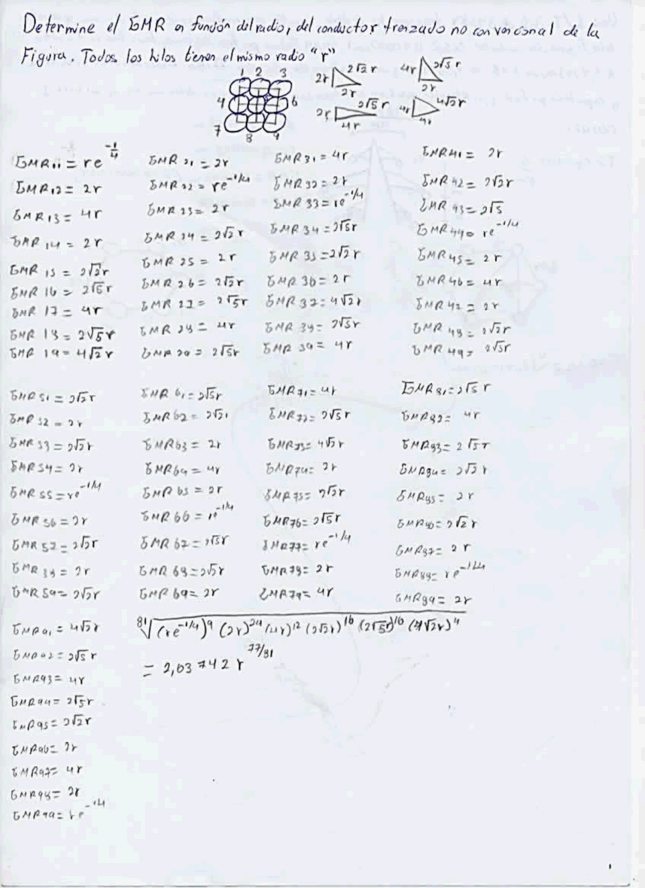 Determine el GMR en función del radio, del conductor trenzado no convencional de la
Figura. Todos los hilos tienen el mismo radio "r"
1 2 3
4 6
7 8 9
2r 2√2 r
2r
4r 2√5 r
2r
2r 2√5 r
4r
4r 4√2 r
4r
GMR11 = re^-1/4
GMR12 = 2r
GMR13 = 4r
GMR 14 = 2r
GMR 15 = 2√2r
GMR 16 = 2√5r
GMR 17 = 4r
GMR 18 = 2√5 r
GMR 19 = 4√2 r
GMR 21 = 2r
GMR22 = re^-1/4
GMR 23 = 2r
GMR 24 = 2√2 r
GMR 25 = 2r
GMR 26 = 2√2r
GMR 27 = 2√5r
GMR 28 = 4r
GMR 29 = 2√5r
GMR31 = 4r
GMR 32 = 2r
GMR 33 = re^-1/4
GMR 34 = 2√5r
GMR 35 = 2√2r
GMR 36 = 2r
GMR 37 = 4√2 r
GMR 38 = 2√5r
GMR 39 = 4r
GMR41 = 2r
GMR42 = 2√2r
GMR 43 = 2√5
GMR 44 = re^-1/4
GMR45 = 2r
GMR46 = 4r
GMR 47 = 2r
GMR 48 = 2√2r
GMR 49 = 2√5r
GMR 51 = 2√2r
GMR 52 = 2r
GMR 53 = 2√2r
GMR 54 = 2r
GMR 55 = re^-1/4
GMR 56 = 2r
GMR 57 = 2√2r
GMR 58 = 2r
GMR 59 = 2√2r
GMR 61 = 2√5r
GMR62 = 2√2r
GMR63 = 2r
GMR64 = 4r
GMR 65 = 2r
GMR 66 = re^-1/4
GMR 67 = 2√5r
GMR 68 = 2√2r
GMR 69 = 2r
GMR71 = 4r
GMR72 = 2√5r
GMR73 = 4√2r
GMR74 = 2r
GMR75 = 2√2r
GMR76 = 2√5r
GMR77 = re^-1/4
GMR78 = 2r
GMR79 = 4r
GMR81 = 2√5 r
GMR82 = 4r
GMR83 = 2√5r
GMR84 = 2√2r
GMR85 = 2r
GMR86 = 2√2r
GMR87 = 2r
GMR88 = re^-1/4
GMR89 = 2r
GMR91 = 4√2r
GMR92 = 2√5 r
GMR93 = 4r
GMR94 = 2√5r
GMR95 = 2√2r
GMR96 = 2r
GMR97 = 4r
GMR98 = 2r
GMR99 = re^-1/4
81√(re^-1/4)^9 (2r)^24 (4r)^12 (2√2r)^16 (2√5r)^16 (4√2r)^4
= 2,03742 r^77/81